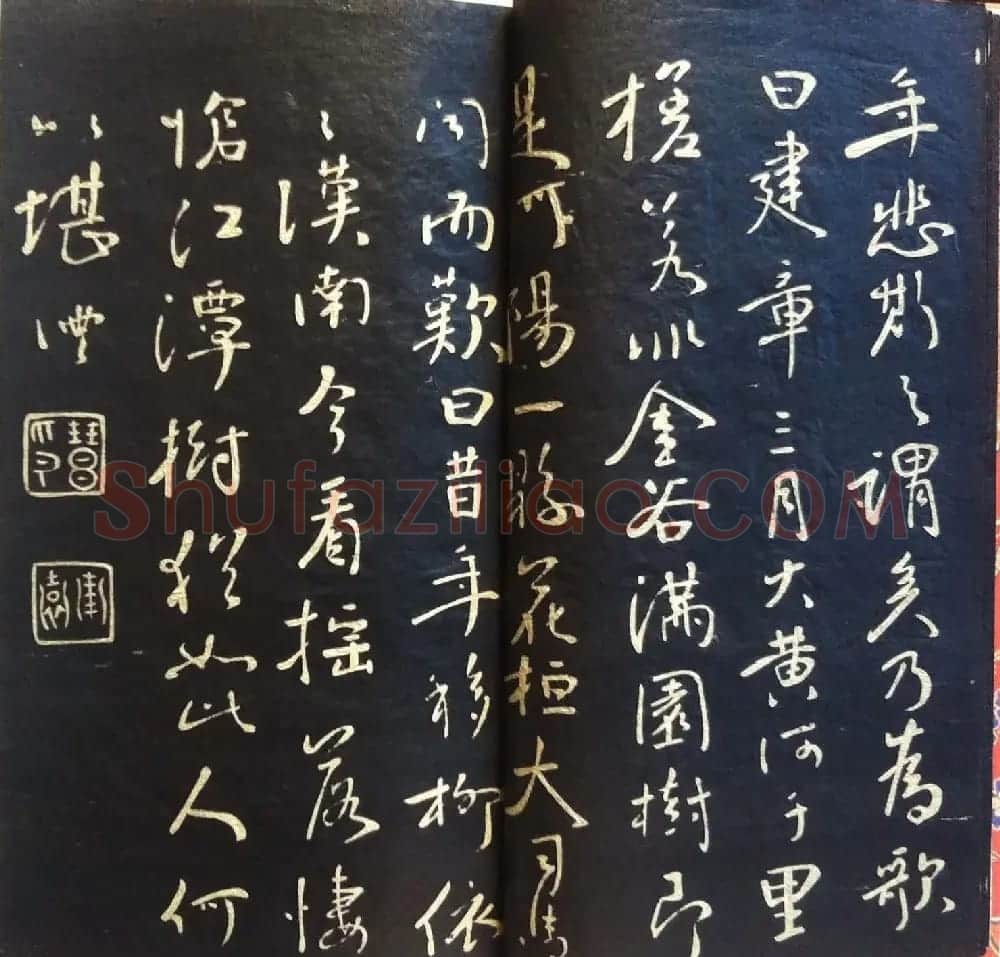 年悲斯之謂矣乃為歌
曰建章三月大黃河千里
槎若非金谷滿園樹即
是河陽一縣花桓大司馬
聞而歎曰昔年移柳依
〻漢南今看摇落悽
愴江潭樹猶如此人何
以堪
Shufaziliao.COM